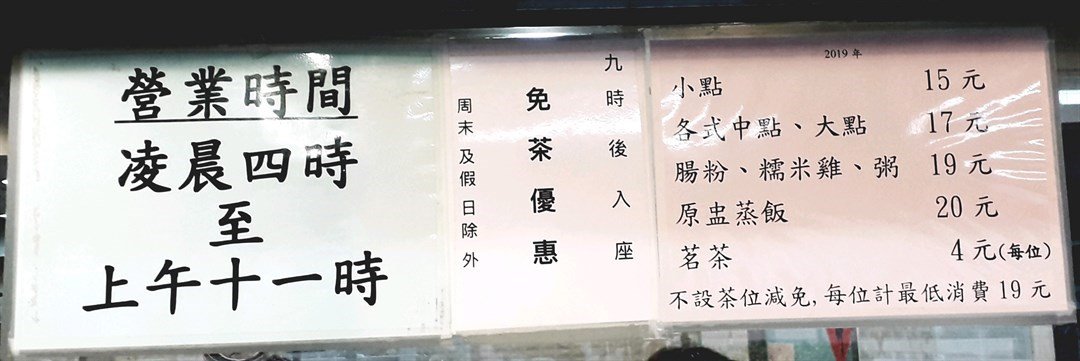 營業時間
凌晨四時
至
上午十一時
九時後入座
免茶優惠
周末及假日除外
2019年
小點 15元
各式中點、大點 17元
腸粉、糯米雞、粥 19元
原盅蒸飯 20元
茗茶 4元(每位)
不設茶位減免,每位計最低消費19元